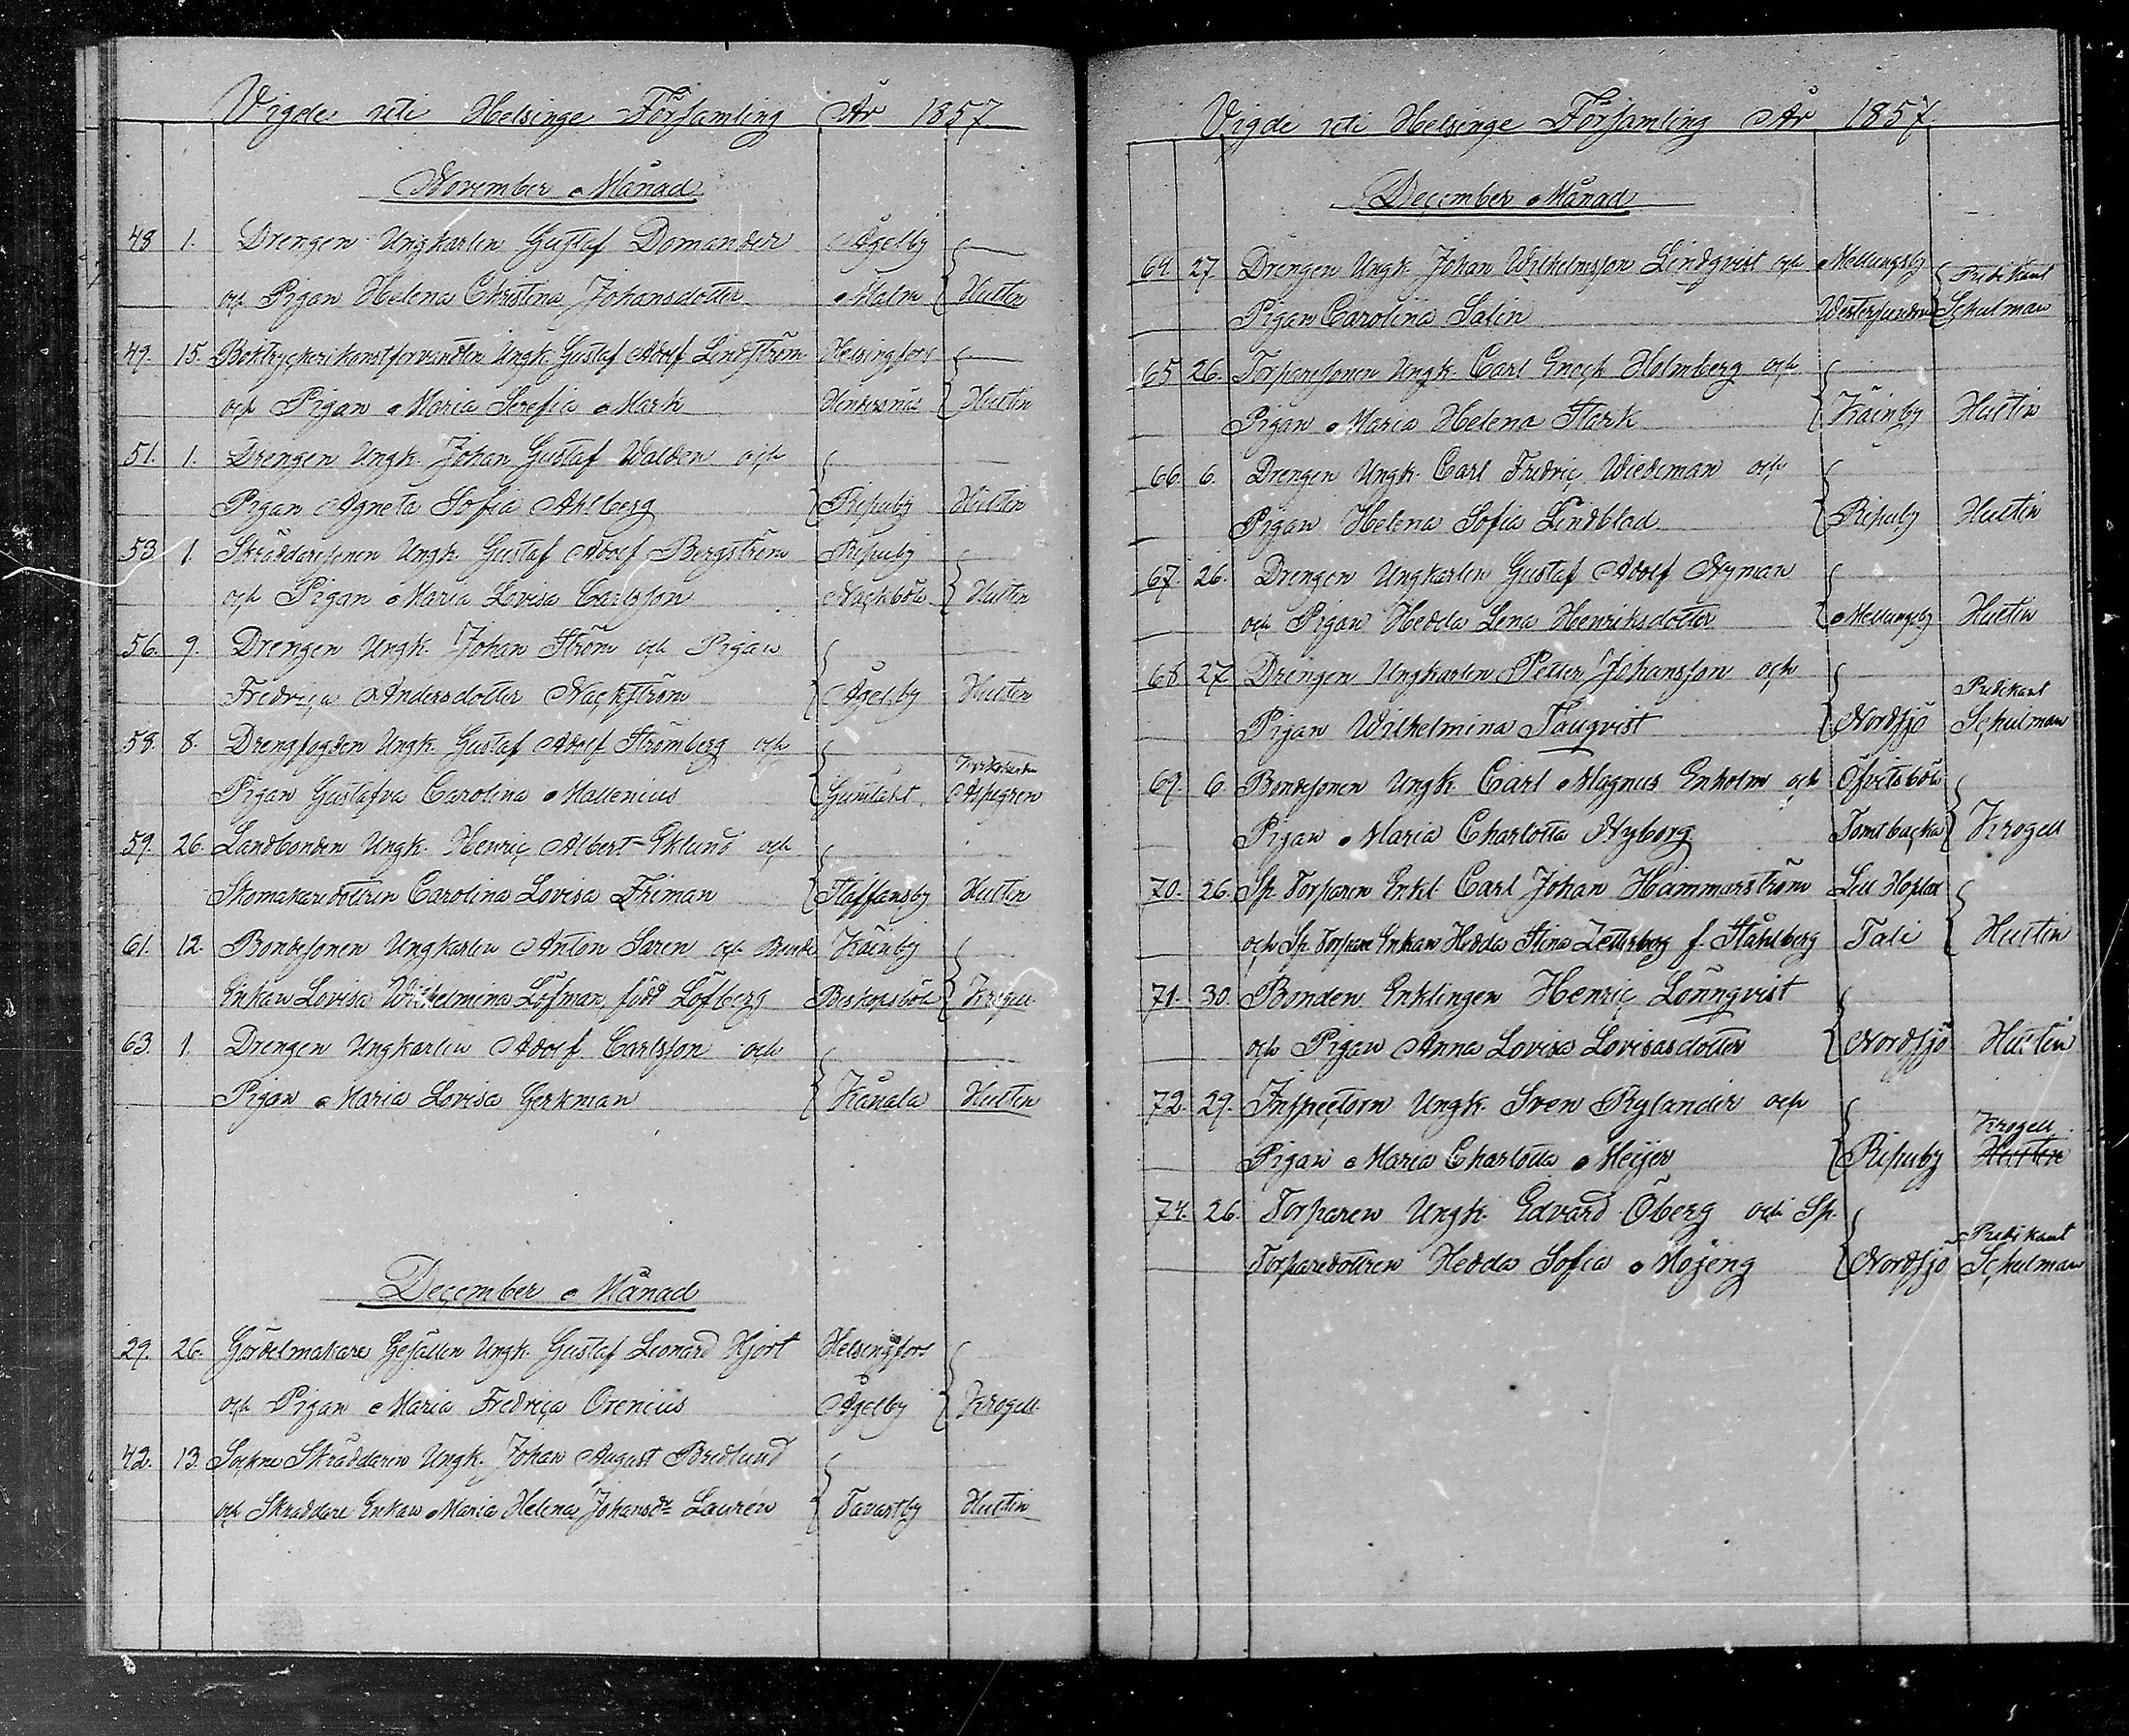 Vigde uti Helsinge Församling År 1857
November Månad
48 1. Drengen Ungkarlen Gustaf Domander Ågelby
och Pigan Helena Christina Johansdotter Malm Hultin
49. 15. Boktryckerikonstförvandten Ungk. Gustaf Adolf Lindström Helsingfors
och Pigan Maria Serefia Mark Hultin
51. 1. Drengen Ungk. Johan Gustaf Walden och
Pigan Agneta Sofia Ahlberg Ripuby Hultin
53 1. Skräddaresonen Ungk. Gustaf Adolf Bergström Ripuby
och Pigan Maria Lovisa Carlsson Nackböle Hultin
56. 9. Drengen Ungk. Johan Ström och Pigan
Fredrica Andersdotter Nackström Ågelby Hultin
58. 8. Drengfogden Ungk. Gustaf Adolf Strömberg och
Pigan Gustafva Carolina Mallenius Gumtäkt Aspegren
59. 26. Landbonden Ungk. Henric Albert Eklund och
Skomakaredottren Carolina Lovisa Friman Staffansby Hultin
61. 12. Bondesonen Ungkarlen Anton Saren och Bonde Käinby
Enkan Lovisa Wilhelmina Löfman, född Löfberg Biskopsböle Krogell
63. 1. Drengen Ungkarlen Adolf Carlsson och
Pigan Maria Lovisa Gerkman Kånala Hultin
December Månad
29. 26. Gördelmakare Gesällen Ungk. Gustaf Leonard Hjort Helsingfors
och Pigan Maria Fredrica Orenius Ågelby Krogell
42. 13. Sockne Skräddaren Ungk. Johan August Bredlund
och Skräddare Enkan Maria Helena Johansdr Laurén Tavastby Hultin
Vigde uti Helsinge Församling År 1857.
December Månad
64. 27 Drengen Ungk. Johan Wilhelmsson Lindqvist och Mellungsby Predikant
Pigan Carolina Salin Westersundom Schulman
65 26. Torparesonen Ungk. Carl Enoch Holmberg och
Pigan Maria Helena Stark Käinby Hultin
66. 6. Drengen Ungk. Carl Fredric Wiedeman och
Pigan Helena Sofia Lindblad Ripuby Hultin
67. 26. Drengen Ungkarlen Gustaf Adolf Nyman
och Pigan Hedda Lena Henriksdotter Mellungsby Hultin
68. 27 Drengen Ungkarlen Petter Johansson och Predikant
Pigan Wilhelmina Tauqvist Nordsjö Schulman
69. 6 Bondesonen Ungk. Carl Magnus Enholm och Öfvitsböle
Pigan Maria Charlotta Nyborg Tomtbacka Krogell
70. 26. Sp. Torparen Enkl. Carl Johan Hammarström Lill Hoplax
och Sp. Torpare Enkan Hedda Stina Zetterberg f. Ståhlberg Tali Hultin
71. 30. Bonden Enklingen Henric Lönnqvist
och Pigan Anna Lovisa Lovisasdotter Nordsjö Hultin
72. 29. Inspectorn Ungk. Sven Rylander och Krogell
Pigan Maria Charlotta Meijer Ripuby Hultin
74. 26. Torparen Ungk. Edvard Öberg och Sp. Predikant
Torparedottren Hedda Sofia Möjeng Nordsjö Schulman